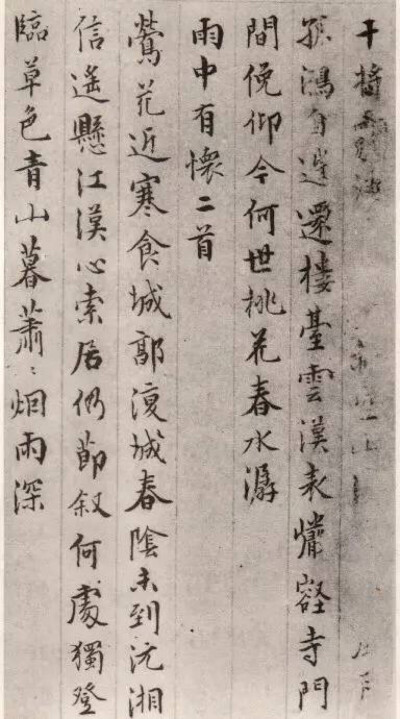 干將
孤鴻自遠還樓臺雲漢表懽壑寺門
間俛仰今何世桃花春水潺
雨中有懷二首
鶯花近寒食城郭復城春陰未到沅湘
信遙懸江漢心索居仍節叙何處獨登
臨草色青山暮蕭〻烟雨深